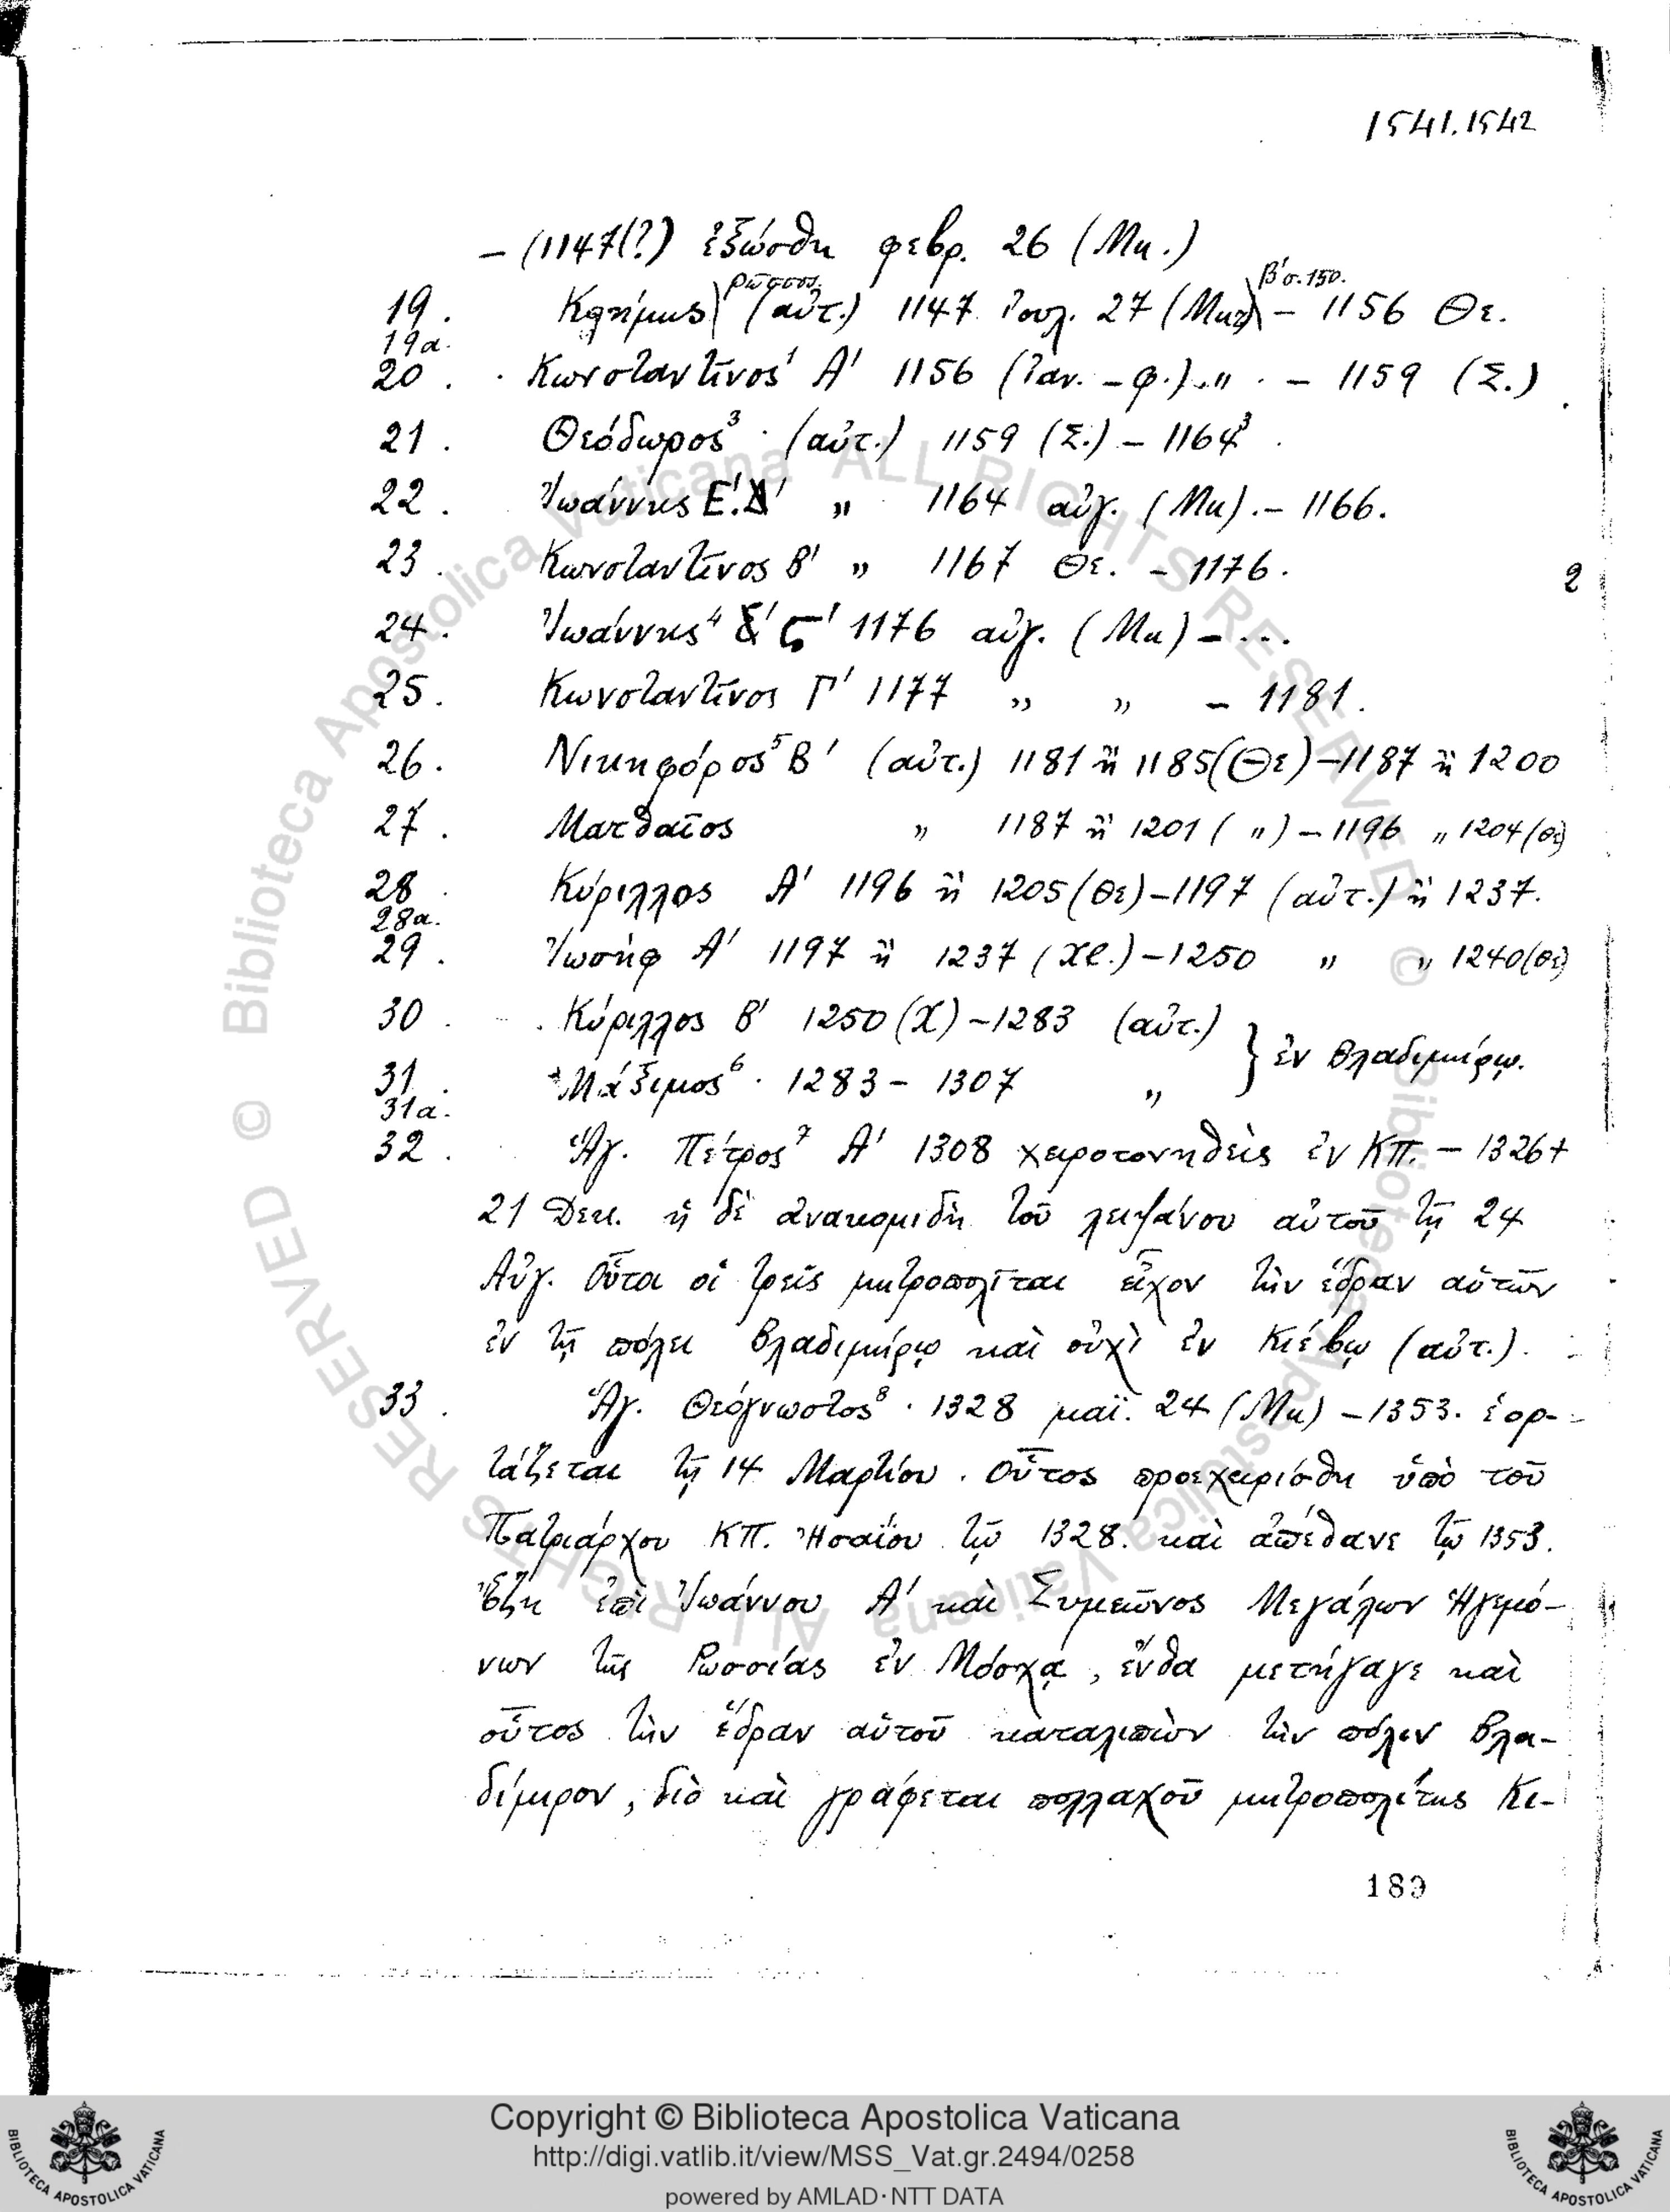 1541.1542
– (1147(?) ἐξώσθη φεβρ. 26 (Μκ.)
ῥῶσσος. β' σ. 150.
19. Κλήμης (αὐτ.) 1147 Ἰουλ. 27 (Μκ) – 1156 Θε.
19α.
20. Κωνσταντῖνος Α' 1156 (Ἰαν. – φ.) „ – 1159 (Σ.)
21. Θεόδωρος³ (αὐτ.) 1159 (Σ.) – 1164³
22. Ἰωάννης Ε'.Δ' „ 1164 αὐγ. (Μκ). – 1166.
23. Κωνσταντῖνος Β' „ 1167 Θε. – 1176.
2
24. Ἰωάννης⁴ ς' 1176 αὐγ. (Μκ) – ...
25. Κωνσταντῖνος Γ' 1177 „ „ – 1181.
26. Νικηφόρος⁵ Β' (αὐτ.) 1181 ἢ 1185 (Θε) – 1187 ἢ 1200
27. Ματθαῖος „ 1187 ἢ 1201 ( „ ) – 1196 „ 1204 (θε)
28. Κύριλλος Α' 1196 ἢ 1205 (θε) – 1197 (αὐτ.) ἢ 1237.
28α.
29. Ἰωσήφ Α' 1197 ἢ 1237 (χρ.) – 1250 „ „ 1240 (θε)
30. Κύριλλος Β' 1250 (Χ) – 1283 (αὐτ.)
} ἐν Βλαδιμήρῳ.
31. Μάξιμος⁶ 1283 – 1307 „
31α.
32. Ἅγ. Πέτρος⁷ Α' 1308 χειροτονηθεὶς ἐν ΚΠ. – 1326 +
21 Δεκ. ἡ δὲ ἀνακομιδὴ τοῦ λειψάνου αὐτοῦ τῇ 24
Αὐγ. Οὗτοι οἱ τρεῖς μητροπολῖται εἶχον τὴν ἕδραν αὑτῶν
ἐν τῇ πόλει Βλαδιμήρῳ καὶ οὐχὶ ἐν Κιέβῳ (αὐτ.).
33. Ἅγ. Θεόγνωστος⁸ 1328 μαΐ. 24 (Μκ) – 1353. ἑορ-
τάζεται τῇ 14 Μαρτίου. Οὗτος προεχειρίσθη ὑπὸ τοῦ
Πατριάρχου ΚΠ. Ἡσαΐου τῷ 1328. καὶ ἀπέθανε τῷ 1353.
Ἔζη ἐπὶ Ἰωάννου Α' καὶ Συμεῶνος Μεγάλων Ἡγεμό-
νων τῆς Ῥωσσίας ἐν Μόσχᾳ, ἔνθα μετήγαγε καὶ
οὗτος τὴν ἕδραν αὑτοῦ καταλιπὼν τὴν πόλιν Βλα-
δίμηρον, διὸ καὶ γράφεται πολλαχοῦ μητροπολίτης Κι-
189
© Biblioteca Apostolica Vaticana ALL RIGHTS RESERVED © Biblioteca Apostolica Vaticana ALL RIGHTS RESERVED
Copyright © Biblioteca Apostolica Vaticana
http://digi.vatlib.it/view/MSS_Vat.gr.2494/0258
powered by AMLAD·NTT DATA
BIBLIOTECA APOSTOLICA VATICANA
BIBLIOTECA APOSTOLICA VATICANA